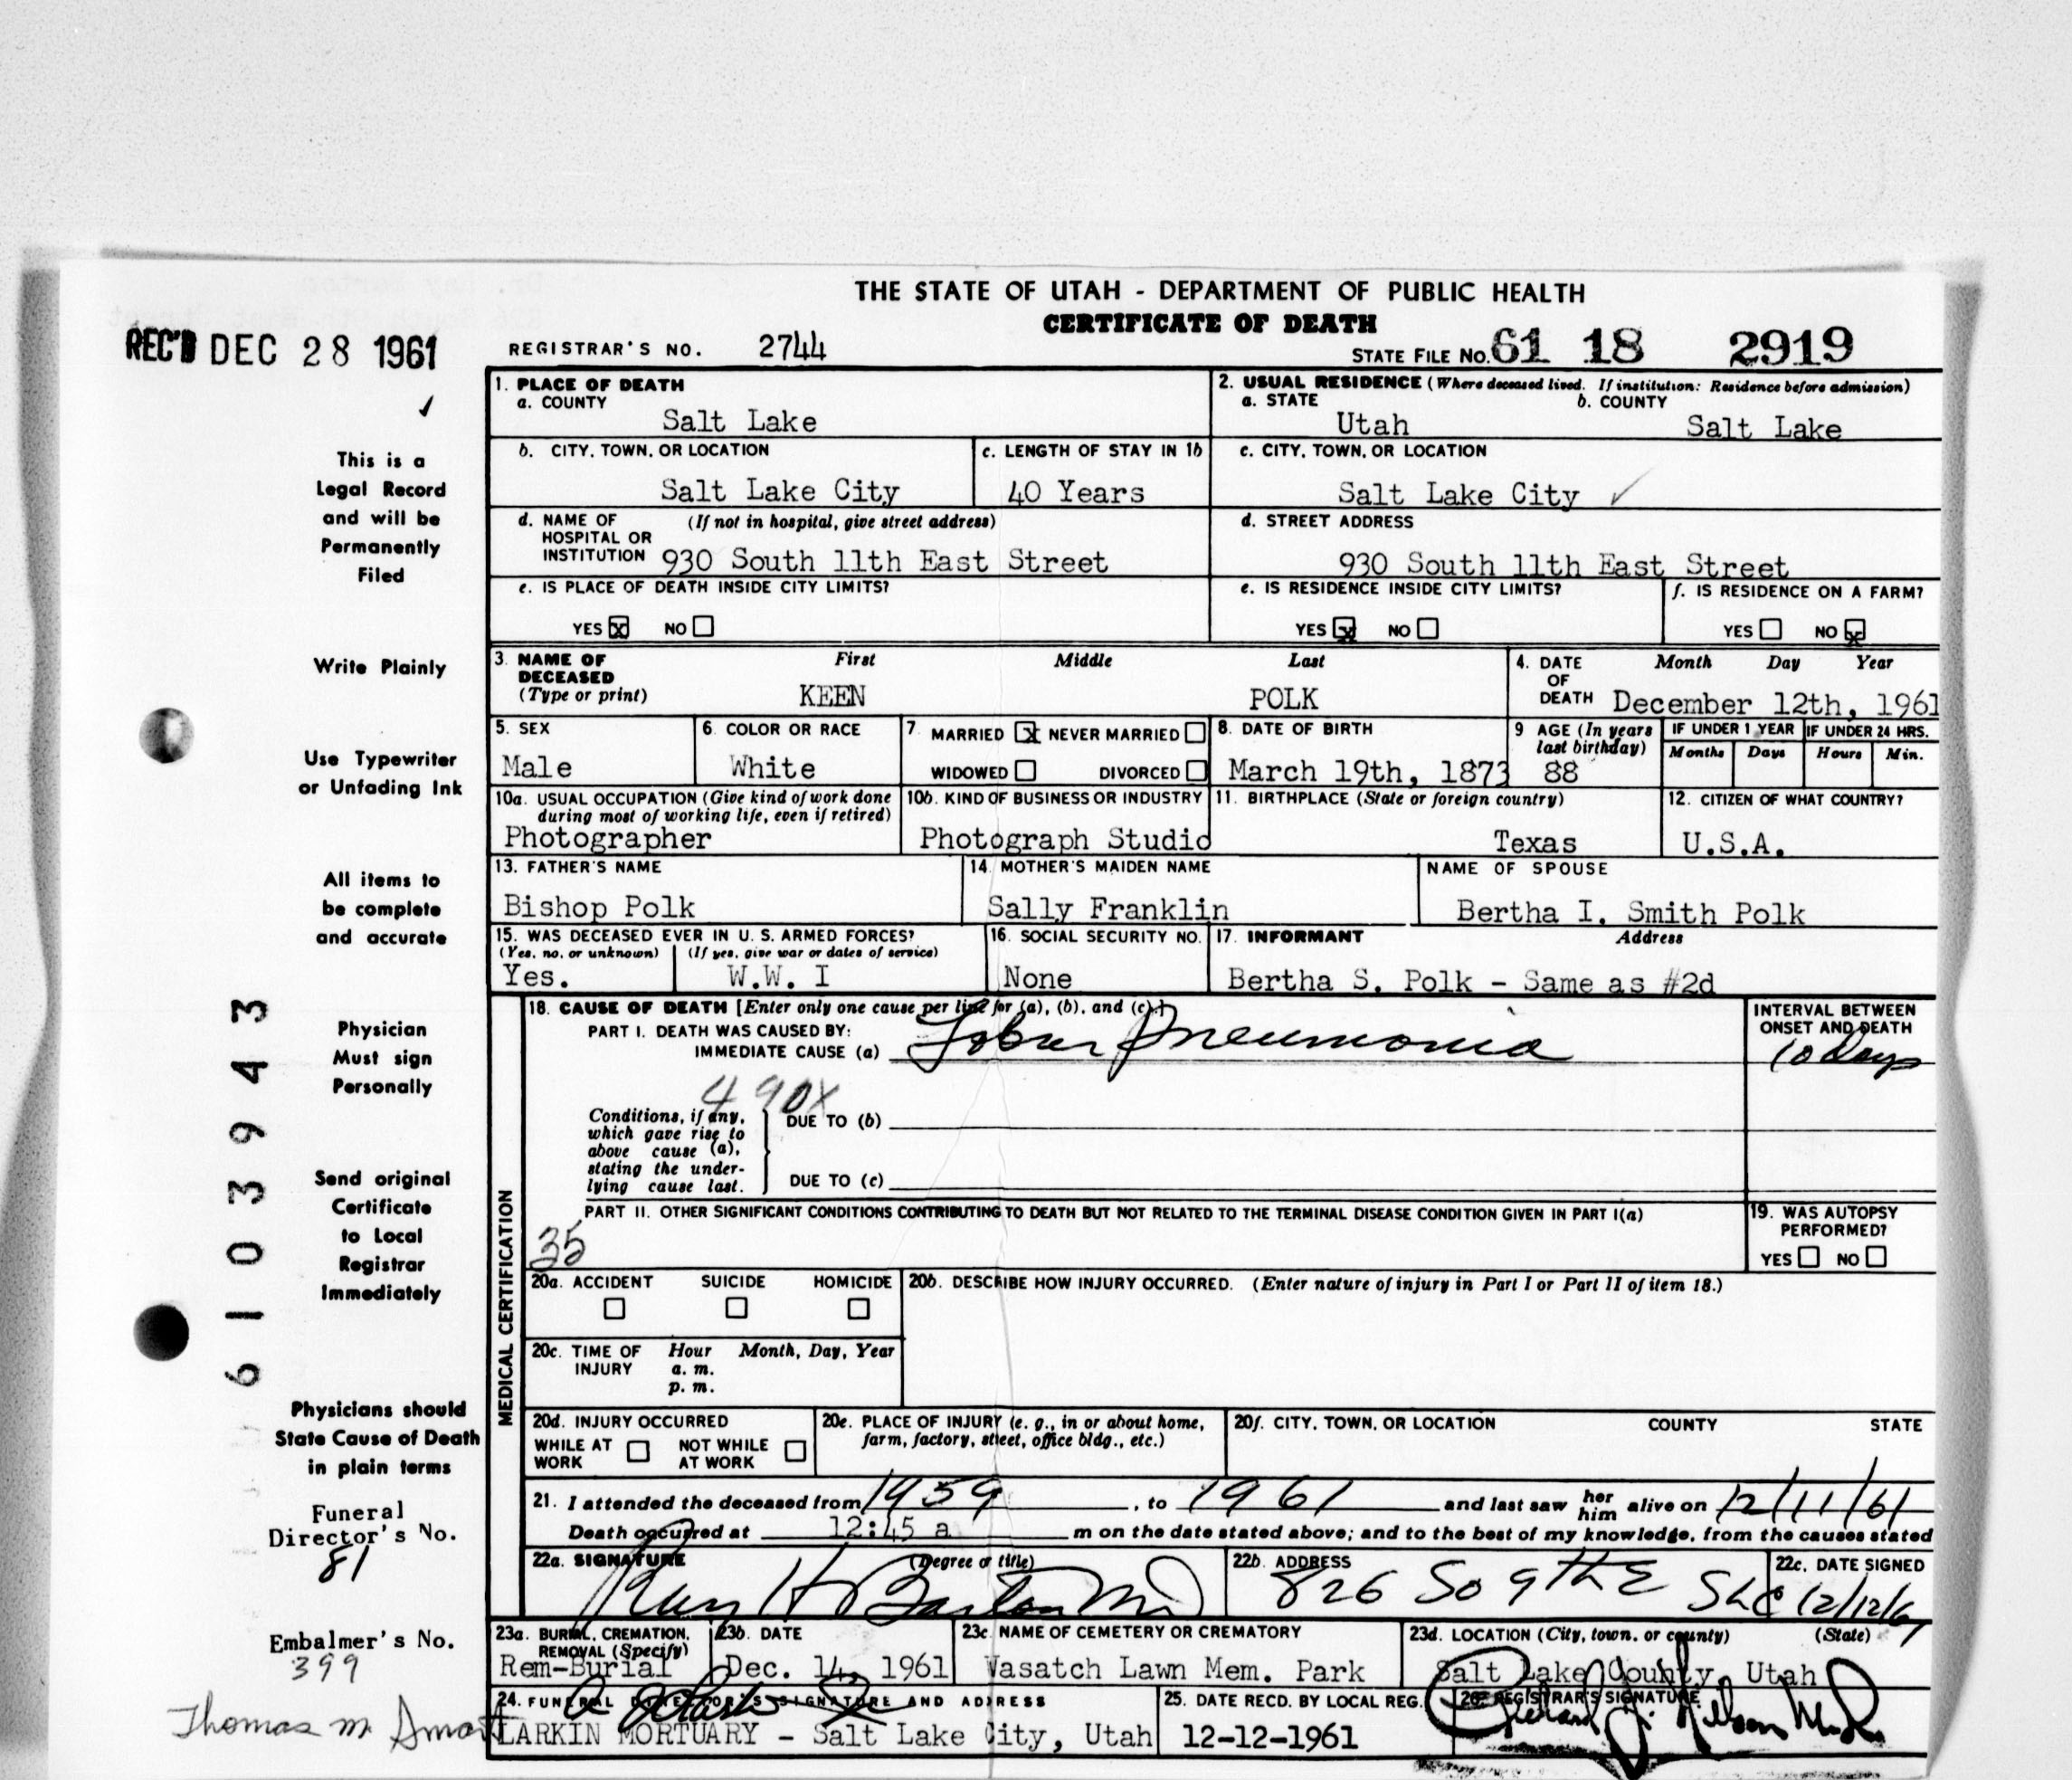 THE STATE OF UTAH - DEPARTMENT OF PUBLIC HEALTH
CERTIFICATE OF DEATH
REC'D DEC 28 1961
REGISTRAR'S NO. 2744
STATE FILE No. 61 18 2919
✓
This is a
Legal Record
and will be
Permanently
Filed
Write Plainly
Use Typewriter
or Unfading Ink
All items to
be complete
and accurate
Physician
Must sign
Personally
Send original
Certificate
to Local
Registrar
Immediately
Physicians should
State Cause of Death
in plain terms
Funeral
Director's No.
81
Embalmer's No.
399
Thomas M. Smart
6103943
1. PLACE OF DEATH
a. COUNTY
Salt Lake
2. USUAL RESIDENCE (Where deceased lived. If institution: Residence before admission)
a. STATE b. COUNTY
Utah Salt Lake
b. CITY, TOWN, OR LOCATION
Salt Lake City
c. LENGTH OF STAY IN 1b
40 Years
c. CITY, TOWN, OR LOCATION
Salt Lake City ✓
d. NAME OF (If not in hospital, give street address)
HOSPITAL OR
INSTITUTION 930 South 11th East Street
d. STREET ADDRESS
930 South 11th East Street
e. IS PLACE OF DEATH INSIDE CITY LIMITS?
YES ☒ NO ☐
e. IS RESIDENCE INSIDE CITY LIMITS?
YES ☒ NO ☐
f. IS RESIDENCE ON A FARM?
YES ☐ NO ☒
3. NAME OF First Middle Last
DECEASED
(Type or print) KEEN POLK
4. DATE Month Day Year
OF
DEATH December 12th, 1961
5. SEX
Male
6. COLOR OR RACE
White
7. MARRIED ☒ NEVER MARRIED ☐
WIDOWED ☐ DIVORCED ☐
8. DATE OF BIRTH
March 19th, 1873
9 AGE (In years
last birthday)
88
IF UNDER 1 YEAR
Months Days
IF UNDER 24 HRS.
Hours Min.
10a. USUAL OCCUPATION (Give kind of work done
during most of working life, even if retired)
Photographer
10b. KIND OF BUSINESS OR INDUSTRY
Photograph Studio
11. BIRTHPLACE (State or foreign country)
Texas
12. CITIZEN OF WHAT COUNTRY?
U.S.A.
13. FATHER'S NAME
Bishop Polk
14. MOTHER'S MAIDEN NAME
Sally Franklin
NAME OF SPOUSE
Bertha I. Smith Polk
15. WAS DECEASED EVER IN U. S. ARMED FORCES?
(Yes, no, or unknown) (If yes, give war or dates of service)
Yes. W.W. I
16. SOCIAL SECURITY NO.
None
17. INFORMANT Address
Bertha S. Polk - Same as #2d
MEDICAL CERTIFICATION
18. CAUSE OF DEATH [Enter only one cause per line for (a), (b), and (c).]
PART I. DEATH WAS CAUSED BY:
IMMEDIATE CAUSE (a) Lobar pneumonia
INTERVAL BETWEEN
ONSET AND DEATH
10 days
490X
Conditions, if any,
which gave rise to
above cause (a),
stating the under-
lying cause last.
DUE TO (b)
DUE TO (c)
PART II. OTHER SIGNIFICANT CONDITIONS CONTRIBUTING TO DEATH BUT NOT RELATED TO THE TERMINAL DISEASE CONDITION GIVEN IN PART I(a)
35
19. WAS AUTOPSY
PERFORMED?
YES ☐ NO ☐
20a. ACCIDENT SUICIDE HOMICIDE
☐ ☐ ☐
20b. DESCRIBE HOW INJURY OCCURRED. (Enter nature of injury in Part I or Part II of item 18.)
20c. TIME OF Hour Month, Day, Year
INJURY a. m.
p. m.
20d. INJURY OCCURRED
WHILE AT ☐ NOT WHILE ☐
WORK AT WORK
20e. PLACE OF INJURY (e. g., in or about home,
farm, factory, street, office bldg., etc.)
20f. CITY, TOWN, OR LOCATION COUNTY STATE
21. I attended the deceased from 1959, to 1961 and last saw her him alive on 12/11/61
Death occurred at 12:45 a m on the date stated above; and to the best of my knowledge, from the causes stated
22a. SIGNATURE (Degree or title)
Ray H Barton MD
22b. ADDRESS
826 So 9th E SLC
22c. DATE SIGNED
12/12/61
23a. BURIAL, CREMATION,
REMOVAL (Specify)
Rem-Burial
23b. DATE
Dec. 14, 1961
23c. NAME OF CEMETERY OR CREMATORY
Wasatch Lawn Mem. Park
23d. LOCATION (City, town, or county) (State)
Salt Lake County, Utah
24. FUNERAL DIRECTOR'S SIGNATURE AND ADDRESS
LARKIN MORTUARY - Salt Lake City, Utah
25. DATE RECD. BY LOCAL REG.
12-12-1961
26. REGISTRAR'S SIGNATURE